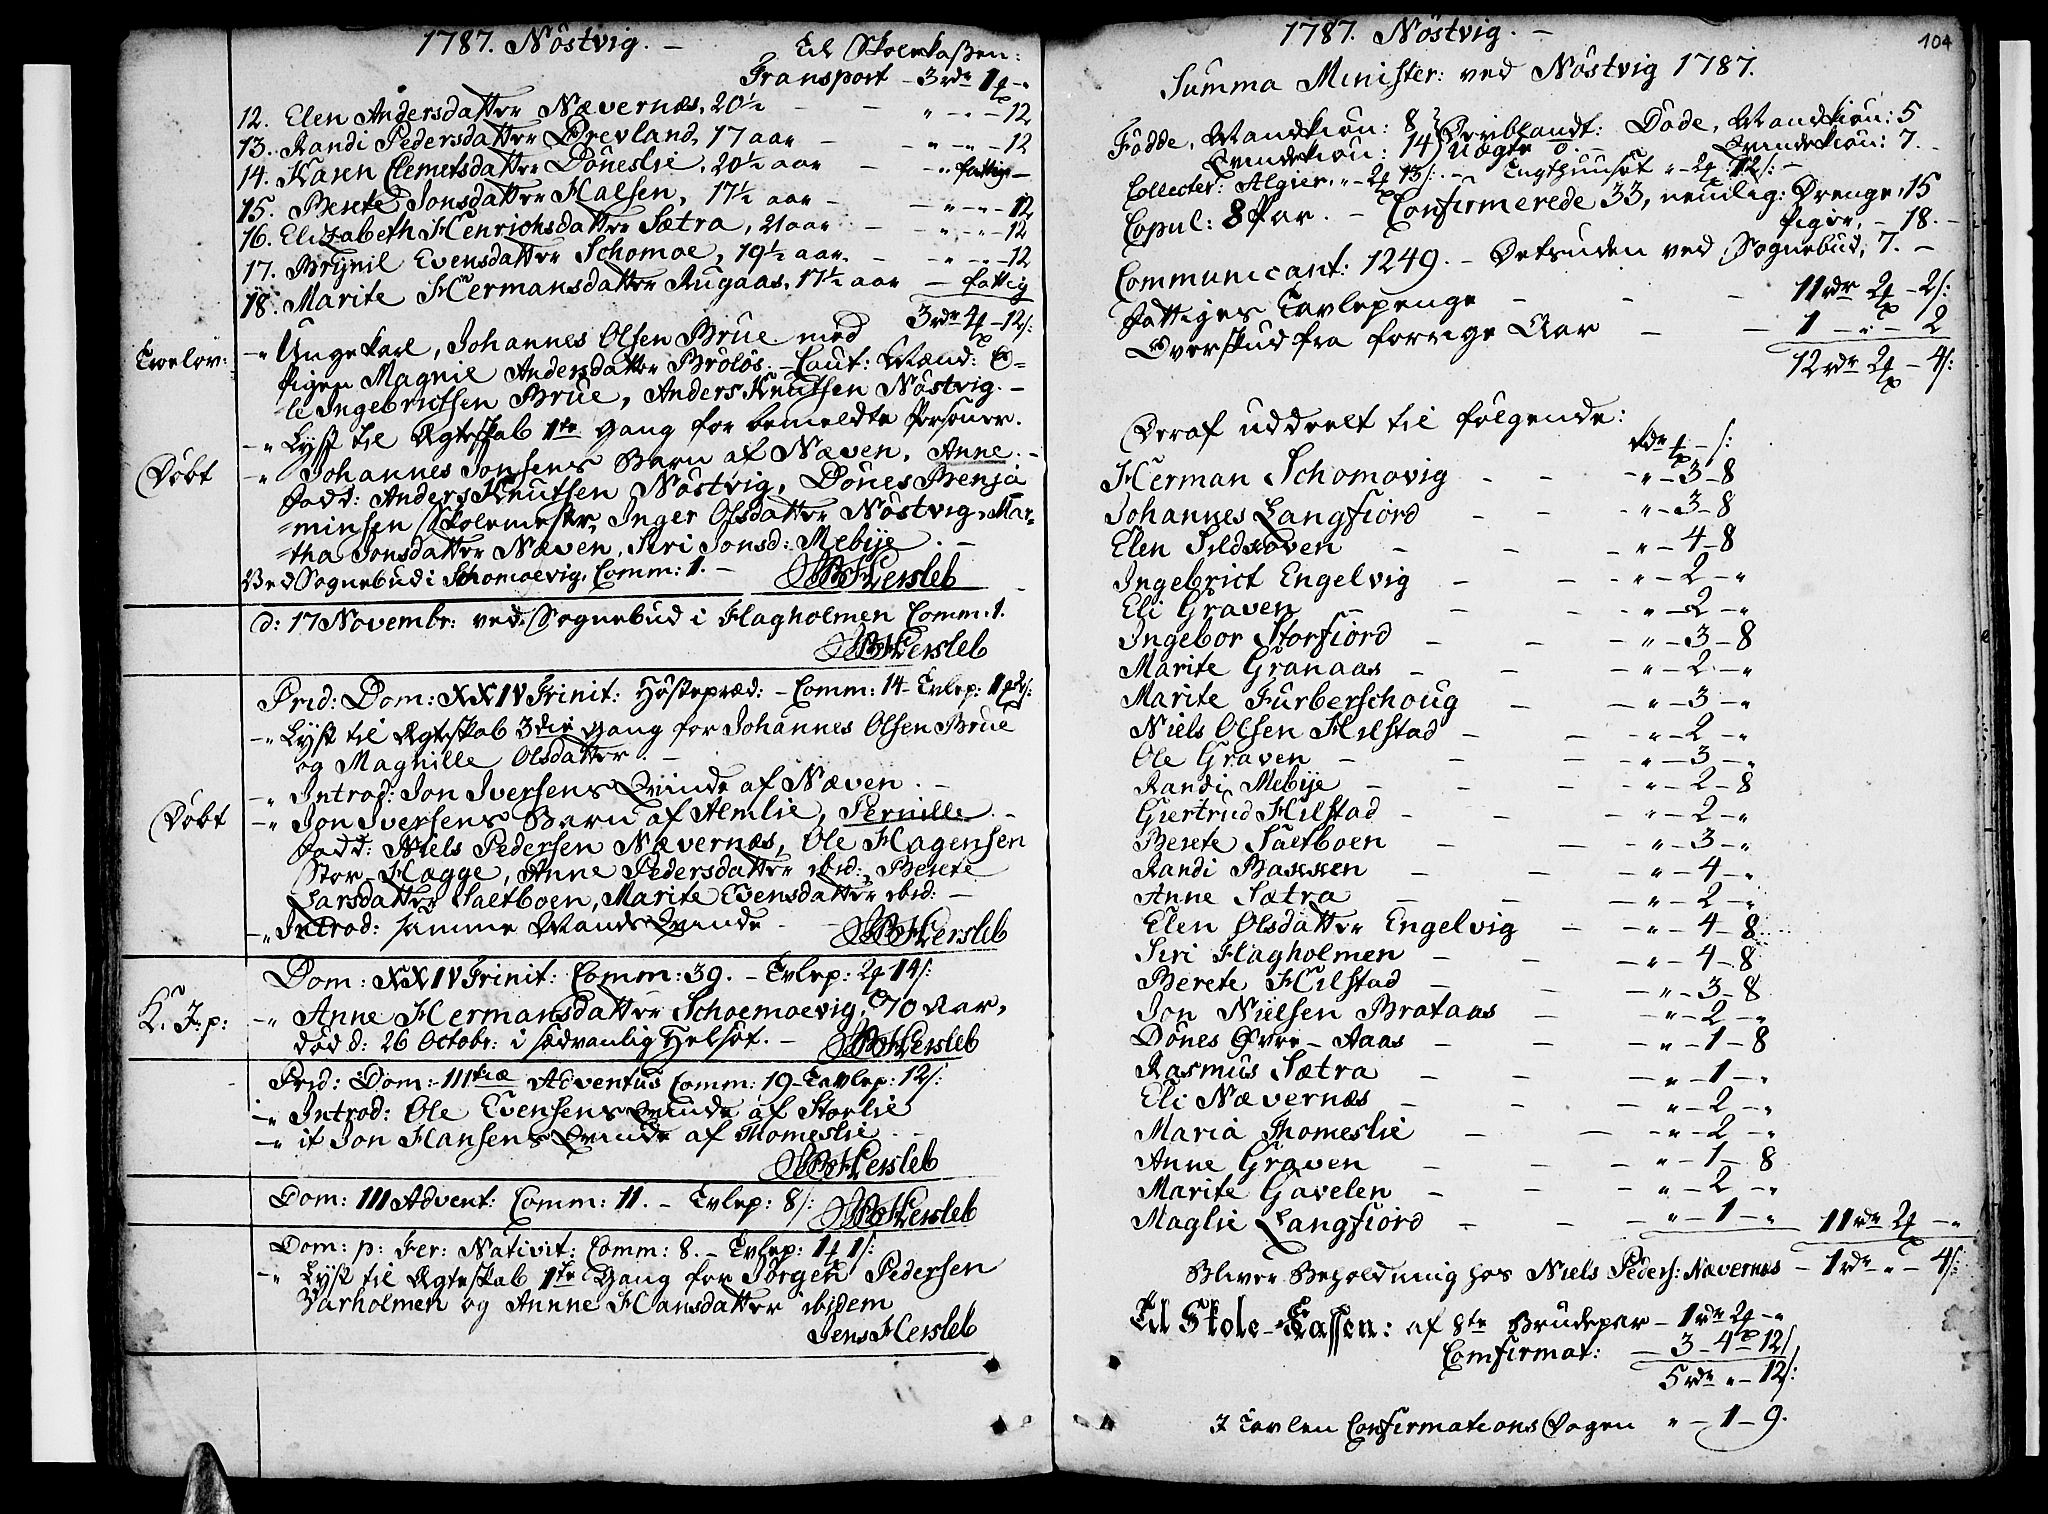 1787. Nöstvig. –
Til Skolekaßen:
Transport – 3 rdr 1 –
12. Elen Andersdatter Nævernæs, 20½ – – 12
13. Randi Pedersdatter Brevland, 17 aar – – 12
14. Karen Clemetsdatter Döneslie, 20½ aar – fattig –
15. Berete Jonsdatter Halsen, 17½ aar – – 12
16. Elizabeth Henrichsdatter Sætra, 21 aar – – 12
17. Brynil Evensdatter Schomoe, 19½ aar. – – 12
18. Marite Hermansdatter Rugaas, 17½ aar – fattig
3 rdr 4 – 12 /:
Troelov: – Ungekarl, Johannes Olsen Brue med
Pigen Magnil Andersdatter Brölös. – Caut: Mænd: O-
le Ingebrictsen Brue, Anders Knutsen Nöstvig. –
– Lyst til Ægteskab 1te Gang for bemeldte Personer.
Döbt – Johannes Jonsens Barn af Næven, Anne. –
Fadd: Anders Knutsen Nöstvig, Dönes Benja
minsen Skolemester, Inger Olsdatter Nöstvig, Mar-
tha Jonsdatter Næven, Siri Jonsd: Mebye. –
Ved Sognebud i Schomoevig, Comm: 1. – Hersleb
d: 17 Novembr: ved Sognebud i Flagholmen Comm: 1.
Hersleb
Prid: Dom: XXIV Trinit: Höstepræd: – Comm: 14 – Tvlep: 1 2/:
– Lyst til Ægteskab 3die Gang for Johannes Olsen Brue
og Magnille Olsdatter. –
– Introd: Jon Iversens Qvinde af Næven. –
Döbt – Jon Iversens Barn af Almlie, Pernille. –
Fadd: Niels Pedersen Nævernæs, Ole Hagensen
Stor-Hagge, Anne Pedersdatter ibid:, Berete
Larsdatter Saetboen, Marite Evensdatter ibid: –
– Introd: samme Mands Qvinde – Hersleb
Dom: XXIV Trinit: Comm: 39. – Tvlep: 2 14/:
K. J: p: – Anne Hermansdatter Schoemoevig, 70 Aar,
död d: 26 Octobr: i sædvanlig Helsot. – Hersleb
Prid: Dom: III tiæ Adventus Comm: 19 – Tavlep: 12/:
– Introd: Ole Evensens Qvinde af Storlie
– it Jon Hansens Qvinde af Thomeslie. –
Hersleb
Dom: III Advent: Comm: 11. – Tvlep: 8/: Hersleb
Dom: p: Fer: Nativit: Comm: 8. – Tvlep: 1 1/:
– Lyst til Ægteskab 1te Gang for Jörgen Pedersen
Varholmen og Annne Hansdatter ibidem
Jens Hersleb
1787. Nöstvig. –
104
Summa Minister: ved Nöstvig 1787.
Födde, Mandkiön: 8 Döde, Mandkiön: 5
Qvindekiön: 14 Uægte 0. – Qvindekiön: 7. –
Collecter: Algier, – 2 13/: – Tugthuuset – 2 12/: –
Copul: 8 Par. – Confirmerede 33, nemlig: Drenge, 15
Piger, – 18. –
Communicant: 1249. – Desuden ved Sognebud, 7. –
Fattiges Tavlepenge – – – 11 rdr 2 – 2/:
Overskud fra forrige Aar – – 1 – – 2
12 rdr 2 – 4/:
Deraf uddeelt til fölgende:
rdr – /:
Herman Schomovig – – – 3 – 8
Johannes Langfiord – – – 3 – 8
Elen Sildhoven – – – 4 – 8
Ingebrict Engelvig – – – 2 –
Eli Graven – – – 2 –
Ingebor Storfiord – – – 3 – 8
Marite Granaas – – – 2 –
Marite Furberschoug – – – 3 –
Niels Olsen Hilstad – – – 2 –
Ole Graven – – – 3 –
Randi Mebye – – – 2 – 8
Giertrud Hilstad – – – 2 –
Berete Saetboen – – – 3 –
Randi Bakken – – – 4 –
Anne Sætra – – – 2 –
Elen Olsdatter Engelvig – – 4 – 8
Siri Flagholmen – – – 4 – 8
Berete Hilstad – – – 3 – 8
Jon Nielsen Brataas – – – 2 –
Dönes Övre-Aaas – – – 1 – 8
Rasmus Sætra – – – 1 –
Eli Nævernæs – – – 2 –
Maria Thomeslie – – – 2 –
Anne Graven – – – 1 – 8
Marite Gavelen – – – 2 –
Maglie Langfiord – – – 1 – 11 rdr 2 –
Bliver Beholdning hos Niels Peders: Nævernæs – 1 rdr – 4/:
Til Skole-Kassen: af 8te Brudepar – 1 rdr 2 –
Comfirmat: – 3 – 4 – 12/,
5 rdr – 12/:
I Tavlen Confirmations Dagen – 1 – 9.